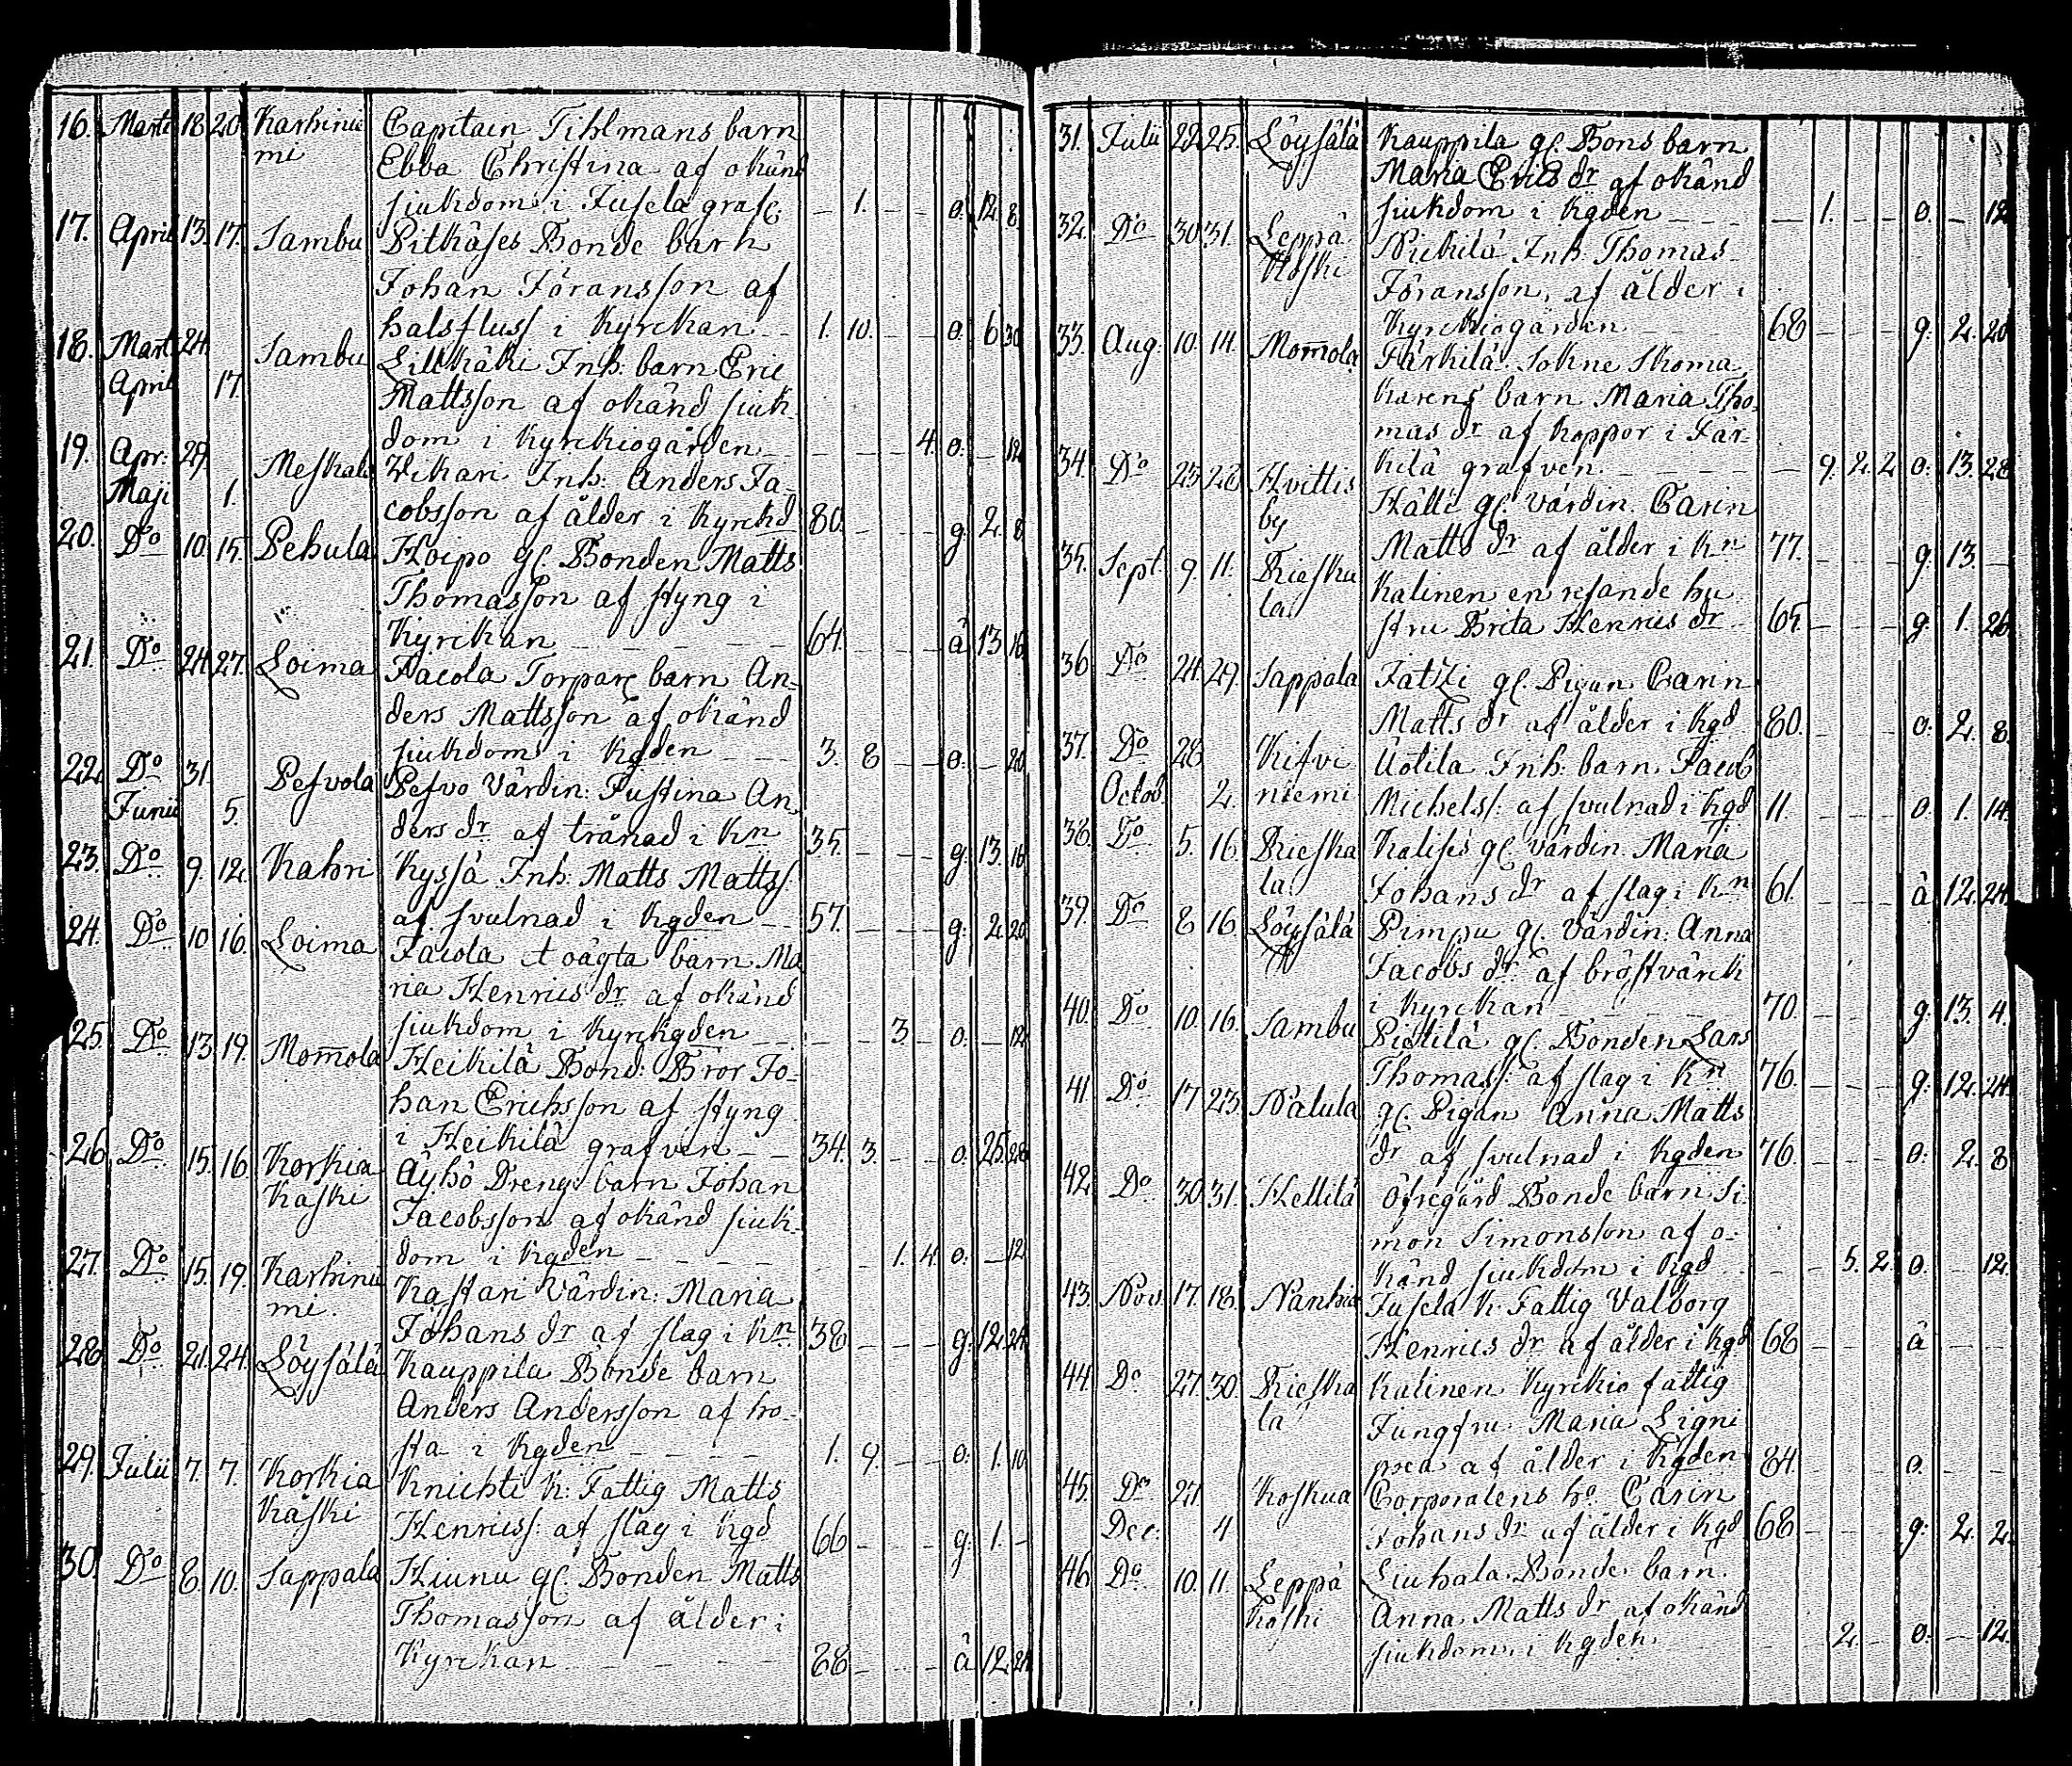 16. Martii 18. 20. Karhinie Capitain Tihlmans barn
mi Ebba Christina af okänd
siukdom i Jusela grafv. — 1. — — o: 12. 8
17. April 13. 17. Sambu Pitkäses Bonde barn
Johan Jöransson af
halsfluss i Kyrckan — 1. 10. — — o: 6 30
18. Marti 24. Sambu Lillkäki Inh: barn Eric
April 17. Mattsson af okänd siuk-
dom i Kyrckiogården — — — 4. o: — 12
19. Apr: 29. Meskala Wikari Inh: Anders Ja-
Maji 1. cobsson af ålder i Kyrckd 80. — — — g. 2. 8
20. Do 10. 15. Pehula Hoipo gl. Bonden Matts
Thomasson af styng i
Kyrckan — — — 64. — — — å 13 16
21. Do 24. 27. Loima Jacola Torpare barn An-
ders Mattsson af okänd
siukdom i Kgden — — 3. 8 — — o: — 20
22. Do 31. Pesvola Pesvo Värdin: Justina An
Junii 5. ders dr af trånad i Kn 35. — — — g. 13. 16
23. Do 9. 12. Kahri Kyssä Inh: Matts Mattss:
af svulnad i Kgden — 57. — — — g. 2. 20
24. Do 10 16. Loima Jacola t oägta barn Ma
ria Henrics dr af okänd
siukdom i Kyrckgden — — — 3. — o: — 12
25. Do 13. 19. Momola Heikilä Bond: Bror Jo-
han Erichsson af styng
i Heikilä grafven — — 34. 3. — — o: 25. 20
26. Do 15. 16. Korkia Äyhö Drengs barn Johan
Kaski Jacobsson af okänd siuk-
dom i Kgden — — — — — 1. 4. o: — 12
27. Do 15. 19. Karhinie Kastari Värdin: Maria
mi. Johans dr af slag i Kn 38 — — — g. 12. 24
28. Do 21. 24. Löysälä Kauppila Bonde barn
Anders Andersson af ho-
sta i Kgden — — — 1. 9. — — o: 1. 10
29. Julii 7. 7. Korkia Knichti K: Fattig Matts
Kaski Henricss: af slag i Kgd 66 — — — g. 1. —
30. Do 8. 10. Sappala Hiunu gl. Bonden Matts
Thomasson af ålder i
Kyrckan — — — 88 — — — å 12. 24
31. Julii 22. 25. Löysälä Kauppila gl. Bons barn
Maria Erics dr af okänd
siukdom i Kgden — — — 1. — — o. — 12
32. Do 30. 31. Leppä Nickilä Inh: Thomas
Koski Jöransson, af ålder i
Kyrckiogården — 68 — — — g. 2. 20
33. Aug. 10. 14. Momola Järkilä Sokne Skoma
karens barn Maria Tho-
mas dr af koppor i Jär-
kilä grafven. — — — 9. 2. 2 o: 13. 28
34. Do 23 26 Hvittis Hälti gl. värdin. Carin
by Matts dr af ålder i Kn 77. — — — g. 13. —
35. Sept. 9. 11. Rieska Kalinen en resande hu
la stru Brita Henrics dr 65. — — — g. 1. 26
36 Do 24. 29. Sappala Jatzi gl. Pigan Carin
Matts dr af ålder i Kgd 80. — — — o: 2. 8.
37. Do 28 Kifvi Uotila Inh: barn. Jacob
Octob. 2. niemi Michelss: af svulnad i Kgd 11. — — — o. 1. 14.
38. Do 5. 16. Rieska Kalises gl. värdin. Maria
la. Johans dr af slag i Kn 61. — — — å 12. 24.
39. Do 8 16 Löysälä Pimpu gl. Värdin: Anna
Jacobs dr af bröstvärck
i Kyrckan — — — 70. — — — g. 13. 4.
40. Do 10. 16. Sambu Pietilä gl. Bonden Lars
Thomass: af slag i Kn 76. — — — g. 12. 24.
41. Do 17 23. Natula gl. Pigan Anna Matts
dr af svulnad i Kgden 76. — — — o. 2. 8
42. Do 30 31. Hellilä Öfregård Bonde barn Si
mon Simonsson af o-
känd siukdom i Kgd — — 5. 2. o. — 12.
43. Nov. 17. 18. Nanhia Jusela K. Fattig Valborg
Henrics dr af ålder i Kgd 68 — — — å — —
44. Do 27. 30. Rieska Kalinen Kyrckio fattig
la Jungfru Maria Ligni
pæa af ålder i Kgden 84. — — — o. — —
45. Do 27. Koskua Corporalens ho Carin
Dec: 4 Johans dr af ålder i Kgd 68 — — — g. 2. 2.
46. Do 10. 11. Leppä Liuhala Bonde barn.
Koski Anna Matts dr af okänd
siukdom i Kgden. — — 2. — o: — 12.